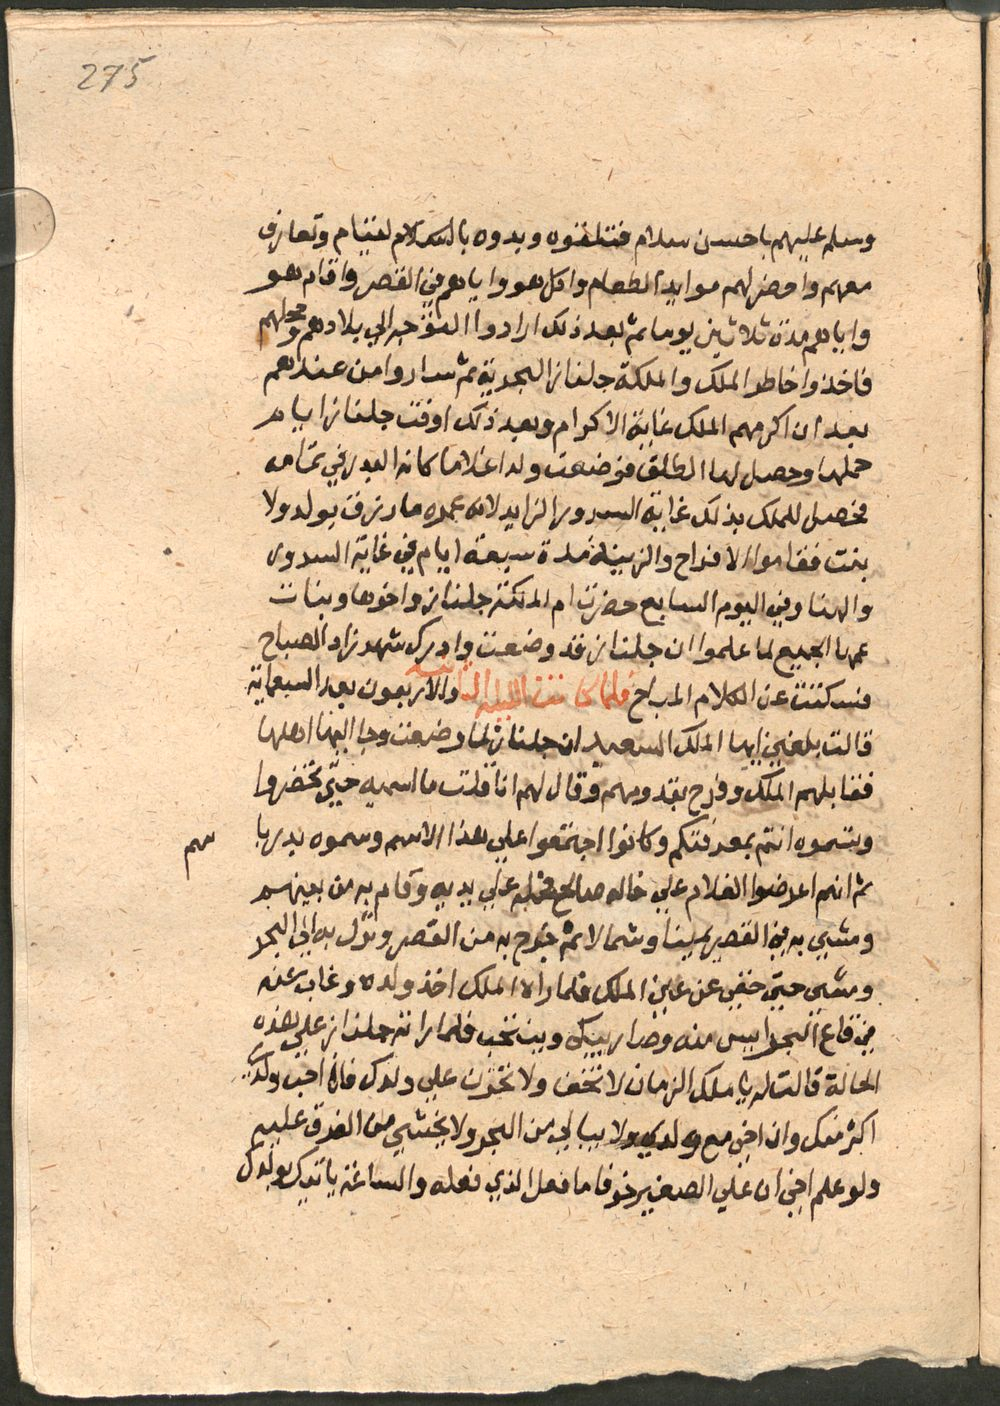 275
وسلم عليهم باحسن سلام فتلقوه وبدوه بالسلام لفينام وتعارف
معهم واحضر لهم موايد الطعام واكل هو واياهم في القصر واقام هو
واياهم مدة ثلاثين يوما ثم بعد ذلك ارادوا التوجه الي بلادهم ومحلهم
فاخذوا خاطر الملك والملكة جلناز البحرية ثم ساروا من عندهم
بعد ان اكرمهم الملك غاية الاكرام وبعد ذلك اوفت جلناز ايام
حملها وحصل لها الطلق فوضعت ولدا غلاما كانه البدر في تمامه
فحصل للملك بذلك غاية السرور الزايد لانه عمره ما رزق بولد ولا
بنت فقاموا الافراح والزينة مدة سبعة ايام في غاية السرور
والهنا وفي اليوم السابع حضرت ام الملكة جلناز واخوها وبنات
عمها الجميع لما علموا ان جلناز قد وضعت وادرك شهرزاد الصباح
فسكتت عن الكلام المباح فلما كانت الليلة الثانيه والاربعون بعد السبعماية
قالت بلغني ايها الملك السعيد ان جلناز لما وضعت وجا اليها اهلها
فقابلهم الملك وفرح بقدومهم وقال لهم انا قلت ما اسميه حتي تحضروا
وتسموه انتم بمعرفتكم وكانوا اجتمعوا علي هذا الاسم وسموه بدر با
سم
ثم انهم اعرضوا الغلام علي خاله صالح فحمله علي يديه وقام به من بينهم
ومشي به في القصر يمينا وشمالا ثم خرج به من القصر ونزل به الي البحر
ومشي حتي خفي عن عين الملك فلما راه الملك اخذ ولده وغاب عنه
في قاع البحر ايس منه وصار يبكي وينتحب فلما راته جلناز علي هذه
الحالة قالت له يا ملك الزمان لا تخف ولا تحزن علي ولدك فانا احب ولدي
اكثر منك وان اخي مع ولدي ولا يبالي من البحر ولا يخشي من الغرق عليه
ولو علم اخي ان علي الصغير خوفا ما فعل الذي فعله والساعة ياتيك بولدك